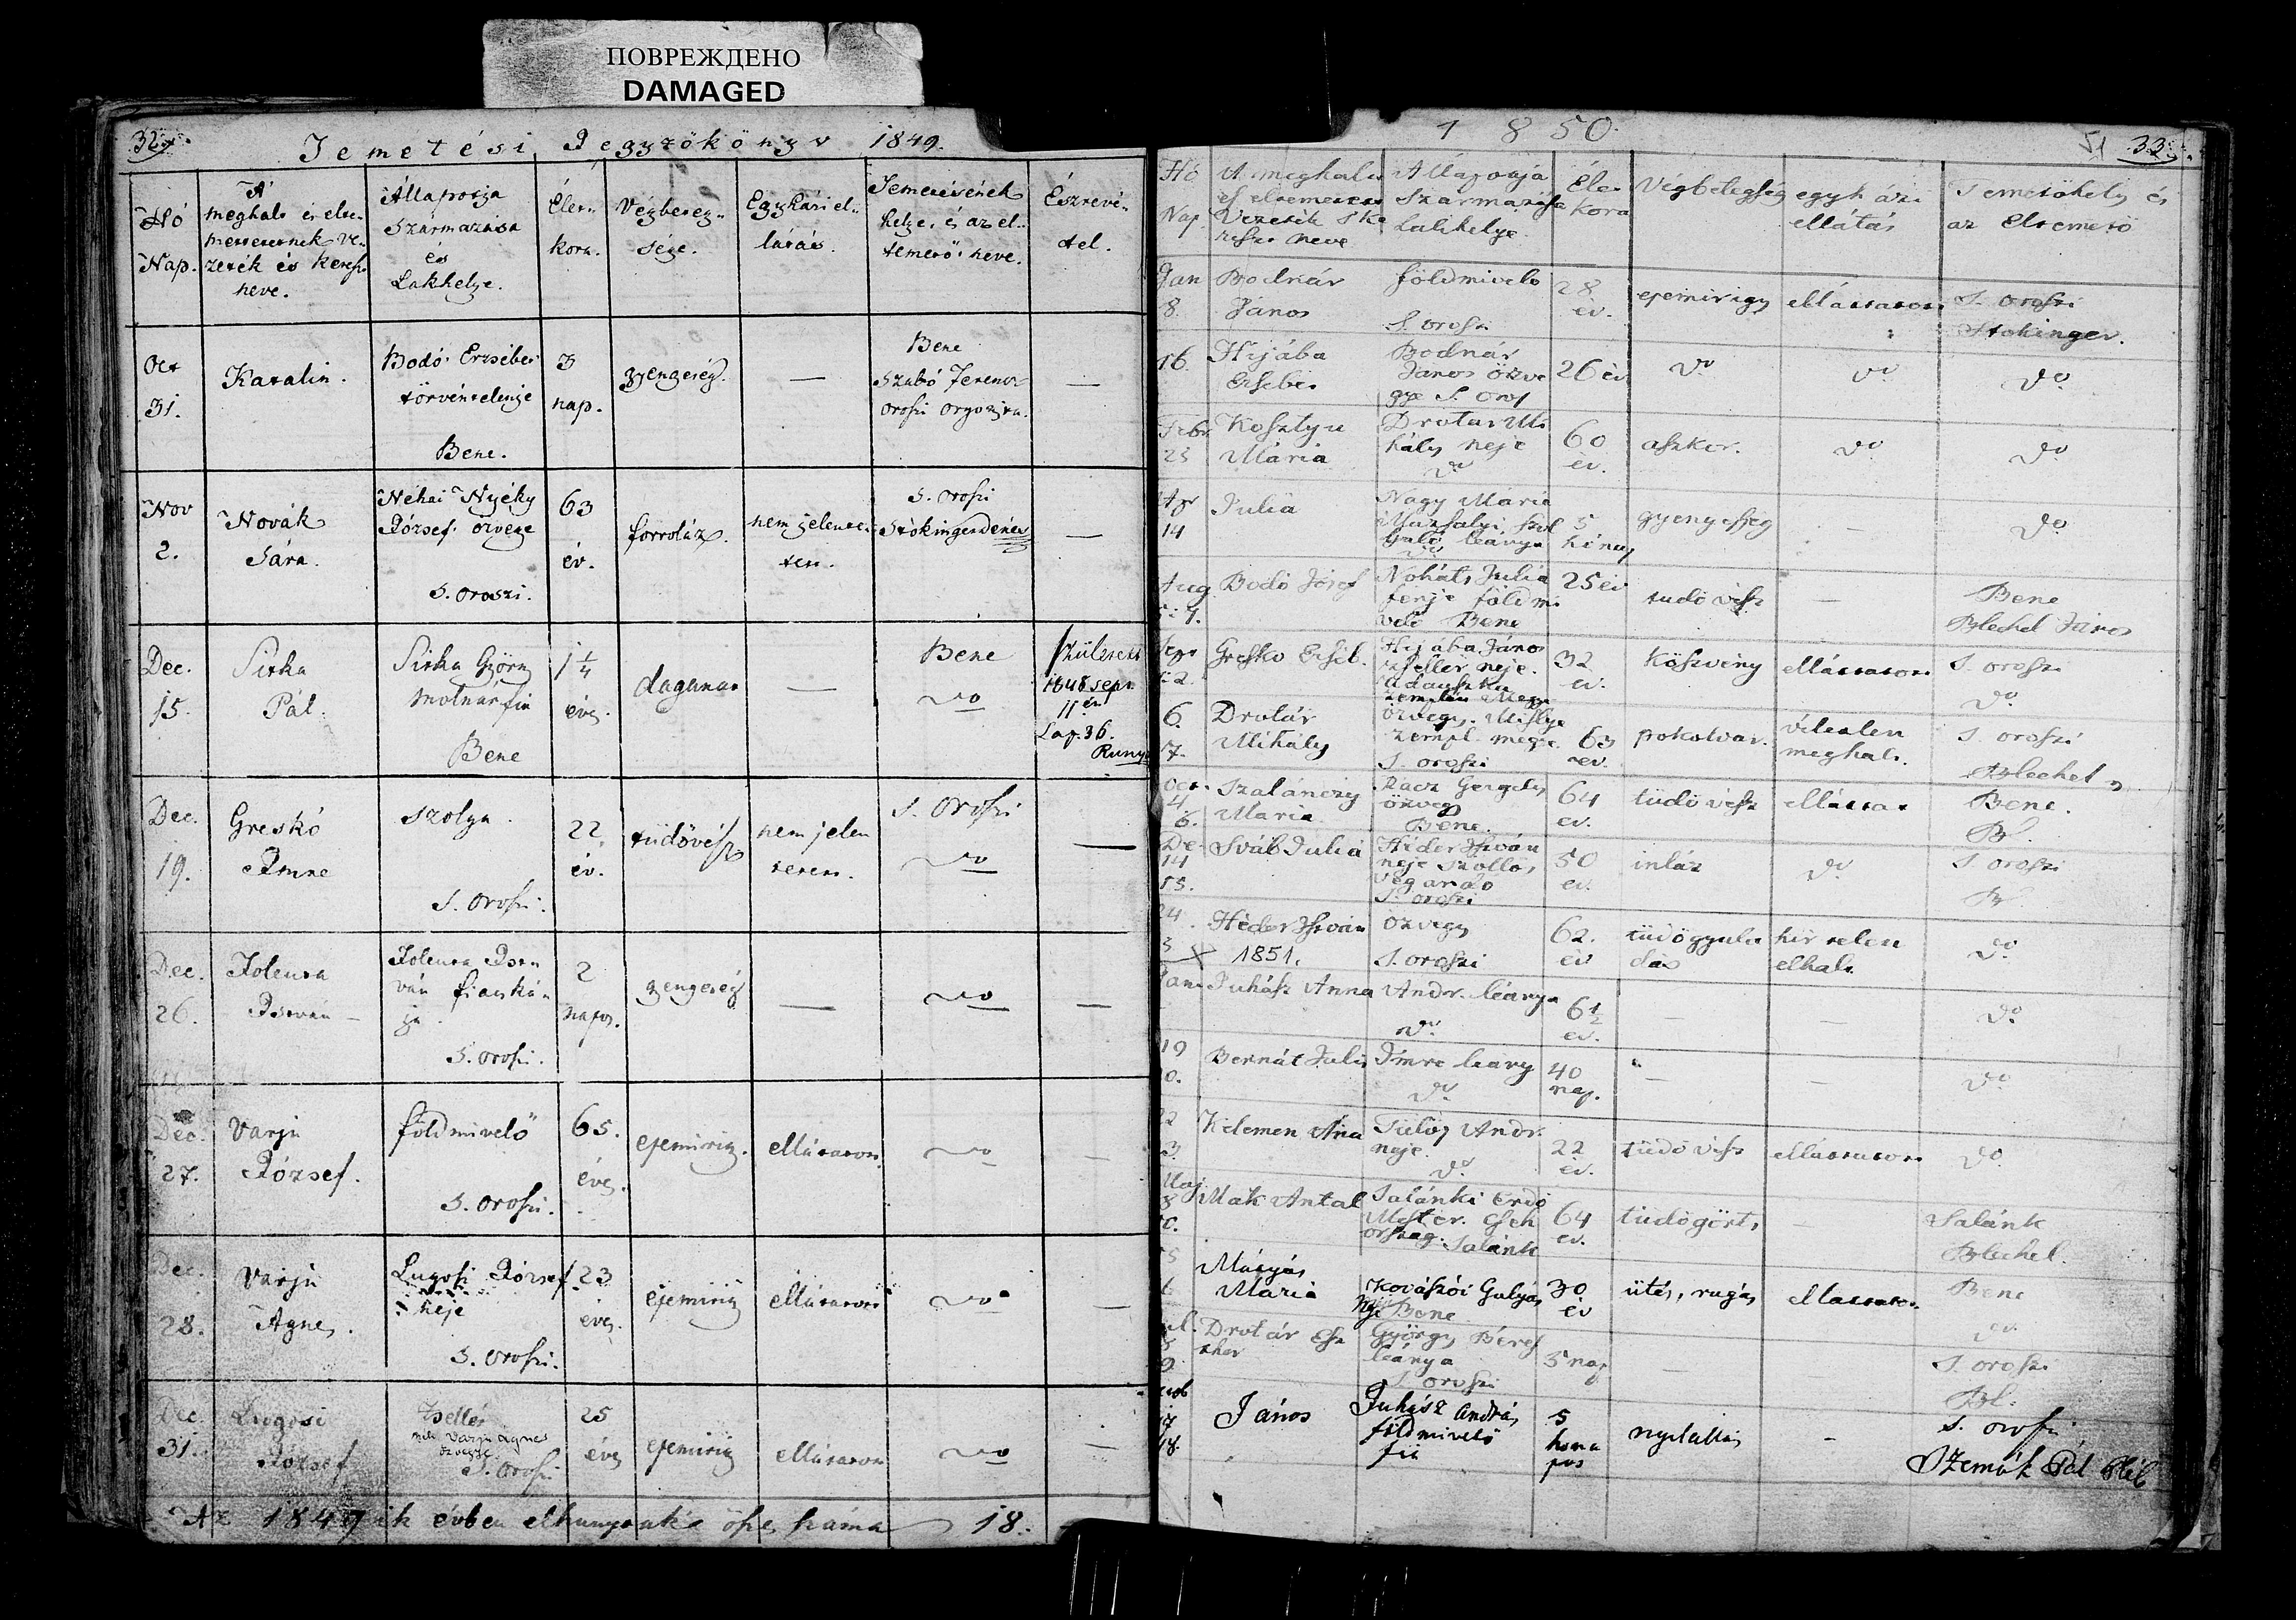 ПОВРЕЖДЕНО
DAMAGED
32
Temetési Jegyzőkönyv 1849.
Hó
Nap.
A
meghalt és elte-
metteteknek ve-
zeték és kereszt
neve.
Állapotja
Származása
és
Lakhelye.
Élet-
kora.
Végbeteg-
sége.
Egyházi el-
látás.
Temetésének
helye, és az el-
temető neve.
Észrevé-
tel.
Oct
31.
Katalin.
Bodó Erzsébet
törvénytelenje
Bene.
3
nap.
gyengeség.
—
Bene
Szabó Ferencz
oroszi orgonista.
—
Nov
2.
Novák
Sára.
Néhai Nyéky
József özvegye
S. oroszi.
63
év.
forróláz.
nem jelente-
tett.
S. oroszi
Stókinger Dénes
—
Dec.
15.
Sitka
Pál.
Sitka György
molnár fia
Bene
1 1/4
éves
daganat
—
Bene
do
született
1848 sept
11én
Lap. 36.
Dec.
19.
Greskó
Imre
szolga.
S. oroszi.
22.
év.
tüdővész
nem jelen
tetett.
S. oroszi
do
—
Dec.
26.
István
fiacská-
ja
S. oroszi.
2
napos.
gyengeség
—
do
—
Dec.
27.
Varju
József.
földmivelő
S. oroszi.
65.
éves.
epemirigy.
ellátatott.
do
—
Dec.
28.
Varju
Ágnes.
Lugosi József
neje
S. oroszi.
23
éves.
epemirigy
ellátatott
do
—
Dec.
31.
Lugosi
József
Zsellér
néh. Varju Ágnes
özvegye
S. oroszi
25
éves
epemirigy
ellátatott
do
—
Az 1849ik évben elhunytak összes száma 18.
1850.
51 33
Hó
Nap.
A meghalt
és eltemetett
Vezeték s ke
reszt neve
Állapotja
Származása
Lakhelye.
Élet
kora
Végbetegség
egyházi
ellátás
Temetőhely és
az Eltemető
Jan
8.
Bodnár
János
földmivelő
S. oroszi
28
év.
epemirigy
ellátatott
S. oroszi
Stokinger.
16.
Hijába
Ersébet
Bodnár
János özve
gye S. Orosz
26 év
do
do
do
Febr
25
Kosztyu
Mária
Drotár Mi
hály neje
do
60
év.
aszkor.
do
do
Apr
14
Julia
Nagy Maria
leánya
do
5
hónap
gyengesség
—
do
Aug
Bodó Jósef
Noháts Julia
ferje földmi
velö Bene
25 év
tüdö vész
—
Bene
Blechel János
Gresko Erséb.
Hijába János
zsellér neje.
Zemplén Megye
32
ev.
Köszvény
ellátatott
S. oroszi
do
6.
7.
Drotár
Mihály
özvegy. Mislye
zempl. megye
S. oroszi
63
ev.
pokolvar.
véletlen
meghalt.
S. oroszi
Blechel
Oct.
4
6.
Szalánczy
Maria
Rácz Gergely
özvegy
Bene.
64
ev.
tüdö vész
ellátta
Bene.
Bl.
De
14
15.
Sváb Julia
Héder István
neje Szöllös
végardó
S. oroszi
50
ev.
inláz
do
S. oroszi
Bl.
24.
Héder István
özvegy
S. oroszi
62.
ev
tüdögyula
dás
hir telen
elhalt
do
X 1851.
Jan
Juhász Anna
Andr. leánya
do
6 1/2
ev.
—
—
do
19
Bernát Julis
Imre leány
do
40
nap.
—
—
do
Kelemen Ana
Andr.
neje.
do
22
ev.
tüdö vész
ellátatott
do
Maj
Mak Antal
Salánki Erdö
Mester. Cseh
ország. Salánk
64
ev.
tüdögörts
—
Salánk
Blechel.
Mátyás
Maria
Kovászói Gulyás
Neje Bene
30
év
ütés, rugás
ellátatott
Bene
do
Drotár Esz
ther
György Béres
leánya
S. oroszi
5 nap
—
S. oroszi
Bl.
17
18.
János
Juhász András
földmivelő
fia
5
hona
pos
nyilallás
-
S. oroszi
Szemák Pál Pléb